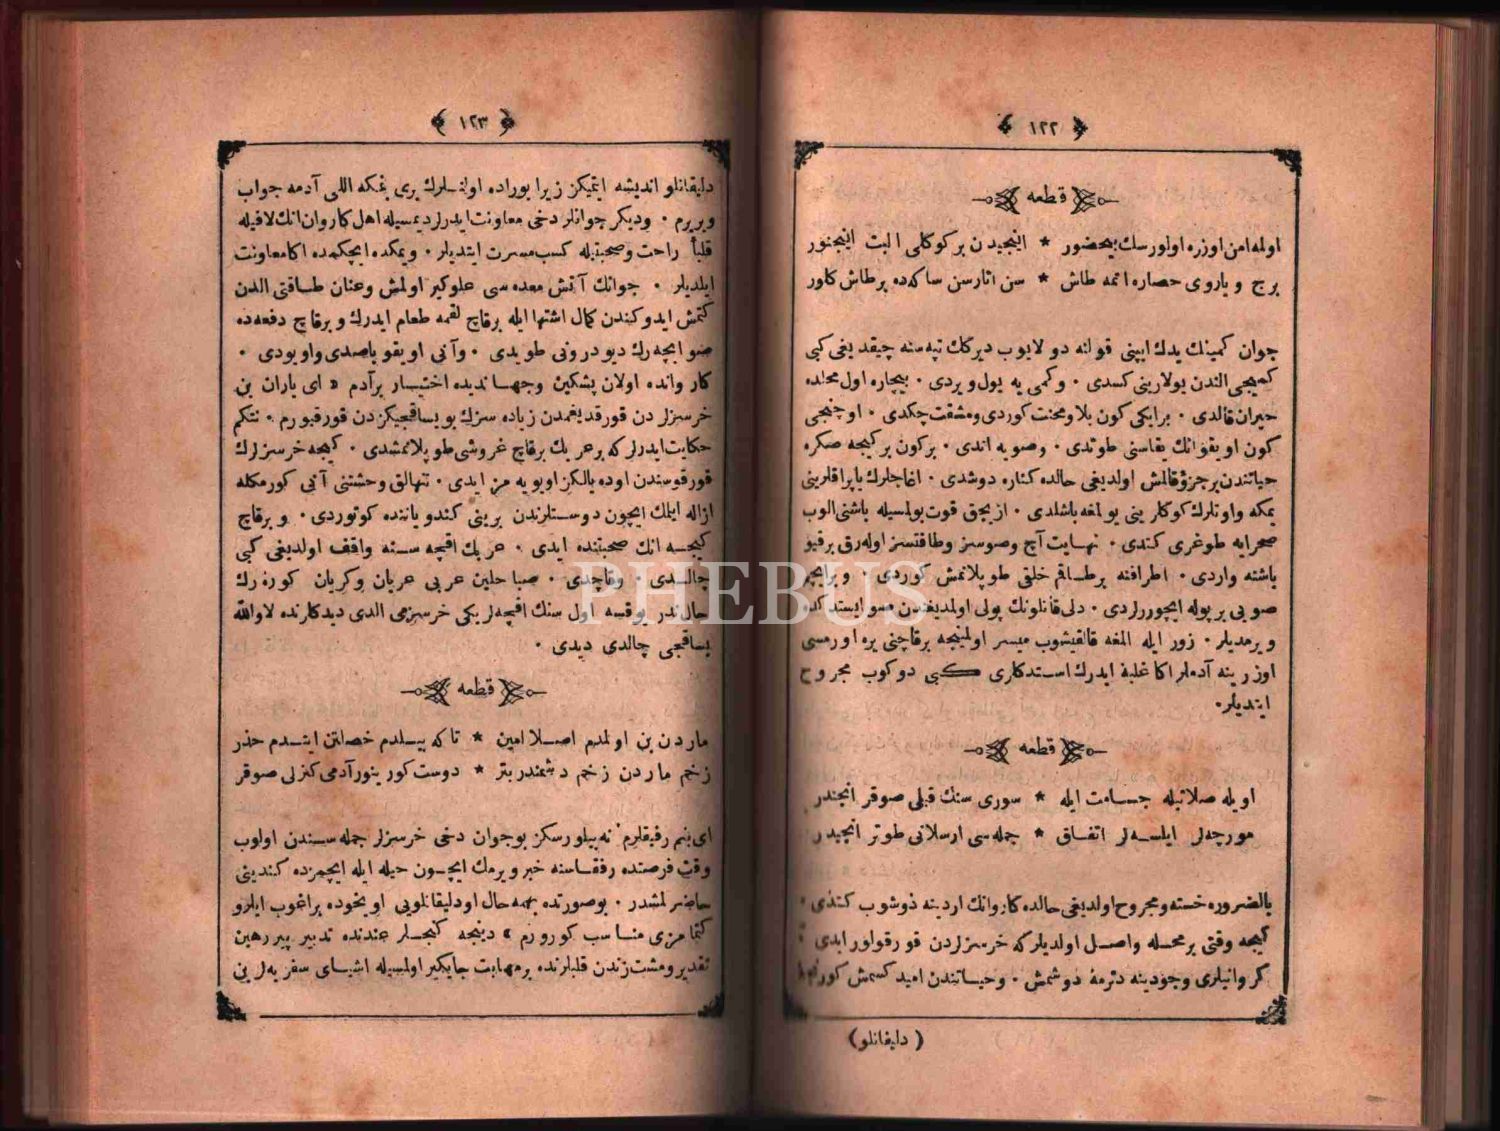 ﴿ ١٢٢ ﴾
قطعه
اولمه امن اوزره اولورسك بیحضور * اینجیدن بر كوكلی البت اینجنور
برج و باروی حصاره اتمه طاش * سن اتارسن ساكه ده بر طاش كلور
جوان كمینك یدك ایپنی قولنه دولایوب دیرك تپه سنه چیقدیغی كبی
كمیجی الندن یولارینی كسدی ٠ وكمی یه یول ویردی ٠ بیچاره اول محلده
حیران قالدی ٠ برایكی كون بلا ومحنت كوردی ومشقت چكدی ٠ اوچنجی
كون اویقو انك یقاسنی طوتدی ٠ وصویه اتدی ٠ بركون بركیجه صكره
حیاتندن بر جزؤ قالمش اولدیغی حالده كناره دوشدی ٠ اغاجلرك یاپراقلرینی
یمكه واوتلرك كوكلرینی یولمغه باشلدی ٠ ازیجق قوت بولمسیله باشنی الوب
صحرایه طوغری كتدی ٠ نهایت آچ وصوسز وطاقتسز اوله رق برقیو
باشنه واردی ٠ اطرافنه برطاقم خلقی طوپلانمش كوردی ٠ و برایچیم
صویی بر پوله ایچورلردی ٠ دلی قانلونك پولی اولمدیغندن صو ایستدكده
ویرمدیلر ٠ زور ایله المغه قالقیشوب میسر اولمینجه برقاچنی یره اورمسی
اوزرینه آدملر اكا غلبه ایدرك استدكلری كبی دوكوب مجروح
ایتدیلر٠
قطعه
اویله صلابتیله جسامت ایله * سوری سنك فیلی صوقر انجندر
مورچه لر ایلسه لر اتفاق * جمله سی ارسلانی طوتر انجیدر
بالضروره خسته ومجروح اولدیغی حالده كاروانك اردینه دوشوب كتدی ٠
كیجه وقتی برمحله واصل اولدیلر كه خرسزلردن قورقولور ایدی ٠
كروانیلری وجودینه دتره‌مه دوشمش ٠ وحیاتندن امید كسمش كورنجه
( دلیقانلو )
﴿ ١٢٣ ﴾
دلیقانلو اندیشه ایتمیكز زیرا بوراده اولانلرك بری بنمكه اللی آدمه جواب
ویریرم ٠ ودیكر جوانلر دخی معاونت ایدرلر دیمسیله اهل كاروان انك لافیله
قلباً راحت وصحبتیله كسب مسرت ایتدیلر ٠ ویمكده ایچكمده اكا معاونت
ایلدیلر ٠ جوانك آتش معده سی علوكیر اولمش وعنان طاقتی الدن
كتمش ایدوكندن كمال اشتها ایله برقاچ لقمه طعام ایدرك و برقاچ دفعه ده
صو ایچه رك دیو درونی طویدی ٠ وآنی اویقو باصدی واویودی ٠
كاروانده اولان پشكین وجهاندیده اختیار برآدم « ای یاران بن
خرسزلر دن قورقدیغمدن زیاده سزك بو یساقجیكزدن قورقیورم ٠ نتكم
حكایت ایدرلر كه بر عربك برقاچ غروشی طوپلانمشدی ٠ كیجه خرسزلرك
قورقوسندن اوده یالكز اویویه مز ایدی ٠ تنهالق وحشتنی آنی كورمكله
ازاله ایلمك ایچون دوستلرندن برینی كندو یاننده كوتوردی ٠ و برقاچ
كیجه انك صحبتنده ایدی ٠ عربك اقچه سنه واقف اولدیغی كبی
چالدی ٠ وقاچدی ٠ صباحلین عربی عریان وكریان كوره رك
حال ندر یوقسه اول سنك اقچه لریكی خرسزمی الدی دیدكلرنده لا والله
یساقجی چالدی دیدی ٠
قطعه
ماردن بن اولمدم اصلا امین * تا كه بیلدم خصلتن ایتدم حذر
زخم ماردن زخم دشمندر بتر * دوست كورینور آدمی كزلی صوقر
ای بنم رفیقلرم نه بیلورسكز بو جوان دخی خرسزلر جمله سندن اولوب
وقت فرصتده رفقاسنه خبر ویرمك ایچون حیله ایله ایچمزده كندینی
حاضرلمشدر ٠ بوصورتده بهمه حال اودلیقانلویی اویخوده براغوب ایلرو
كتمامزی مناسب كورورم » دینجه كنجلر عندنده تدبیر پیر رهین
تقدیر ومشت زندن قلبلرنده بر مهابت جایكیر اولمسیله اشیای سفریه لرین
PHEBUS